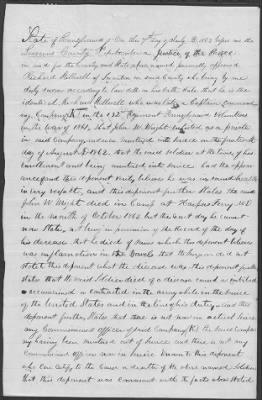 State of Pennsylvania On this 7th day of July A. D. 1863 before me the
Luzerne County a Justice of the Peace
in and for the County and State afore named personally appeared
Richard Hillsell of Scranton in said County who being by me
duly sworn according to law doth on his oath State that he is the
identical Richard who was late a Captain command
ing Company K in the 132nd Regiment Pennsylvania Volunteers
in the war of 1861, that John W. Wright enlisted as a private
in said Company and was mustered into service on the fourteenth
day of August 1862. that the said soldier at the time of his
enrollment and being mustered into service had the appear
ance and this deponent verily believes he was in sound health
in every respect, and this deponent further States the said
John W. Wright died in Camp at Harpers Ferry
in the month of October 1862 but the exact day he cannot
State, not being in possession of the record of the day of
his decease that he died of fever which this deponent believes
was inflammation in the Bowels that the Surgeon did not
state this deponent what the disease was this deponent further
States that the said Soldier died of a disease caused or entitled
occasioned or contracted in the army while in the service
of the United States and in the line of his duty, and this
deponent further States that there is not now in actual service
any Commissioned officer of said Company (K) the said Compa
ny having been mustered out of service and there is not any
Commissioned officer now in service known to this deponent
who can certify to the cause or death of the above named Soldier
that this deponent was conversant with the facts above stated